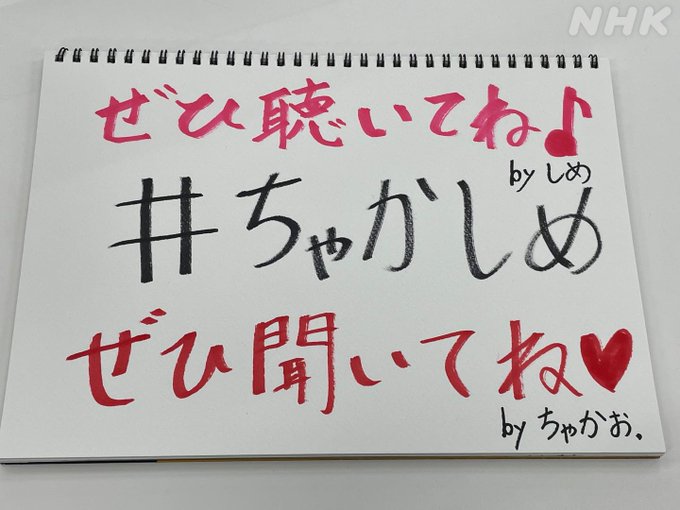 NHK
ぜひ聴いてね♪
by しめ
#ちゃかしめ
ぜひ聞いてね♥
by ちゃかお。